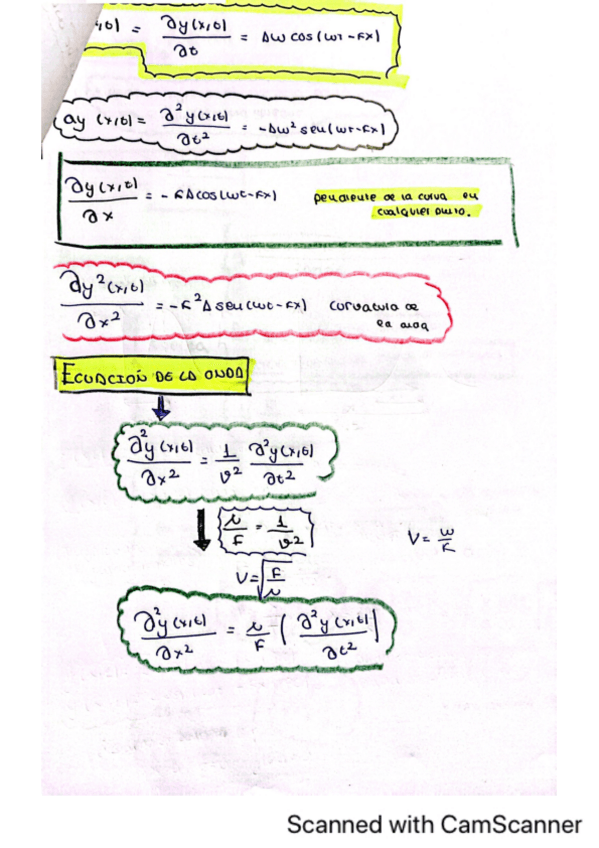 ,t) = ∂y(x,t)/∂t = Aω cos(ωt - kx)
ay (x,t) = ∂²y(x,t)/∂t² = -Aω² sen(ωt - kx)
∂y(x,t)/∂x = - kA cos(ωt - kx) pendiente de la curva en
cualquier punto.
∂y²(x,t)/∂x² = -k²A sen(ωt - kx) curvatura de
la onda
ECUACIÓN DE LA ONDA
∂²y(x,t)/∂x² = 1/v² ∂²y(x,t)/∂t²
μ/F = 1/v² V = ω/k
V = √(F/μ)
∂²y(x,t)/∂x² = μ/F (∂²y(x,t)/∂t²)
Scanned with CamScanner